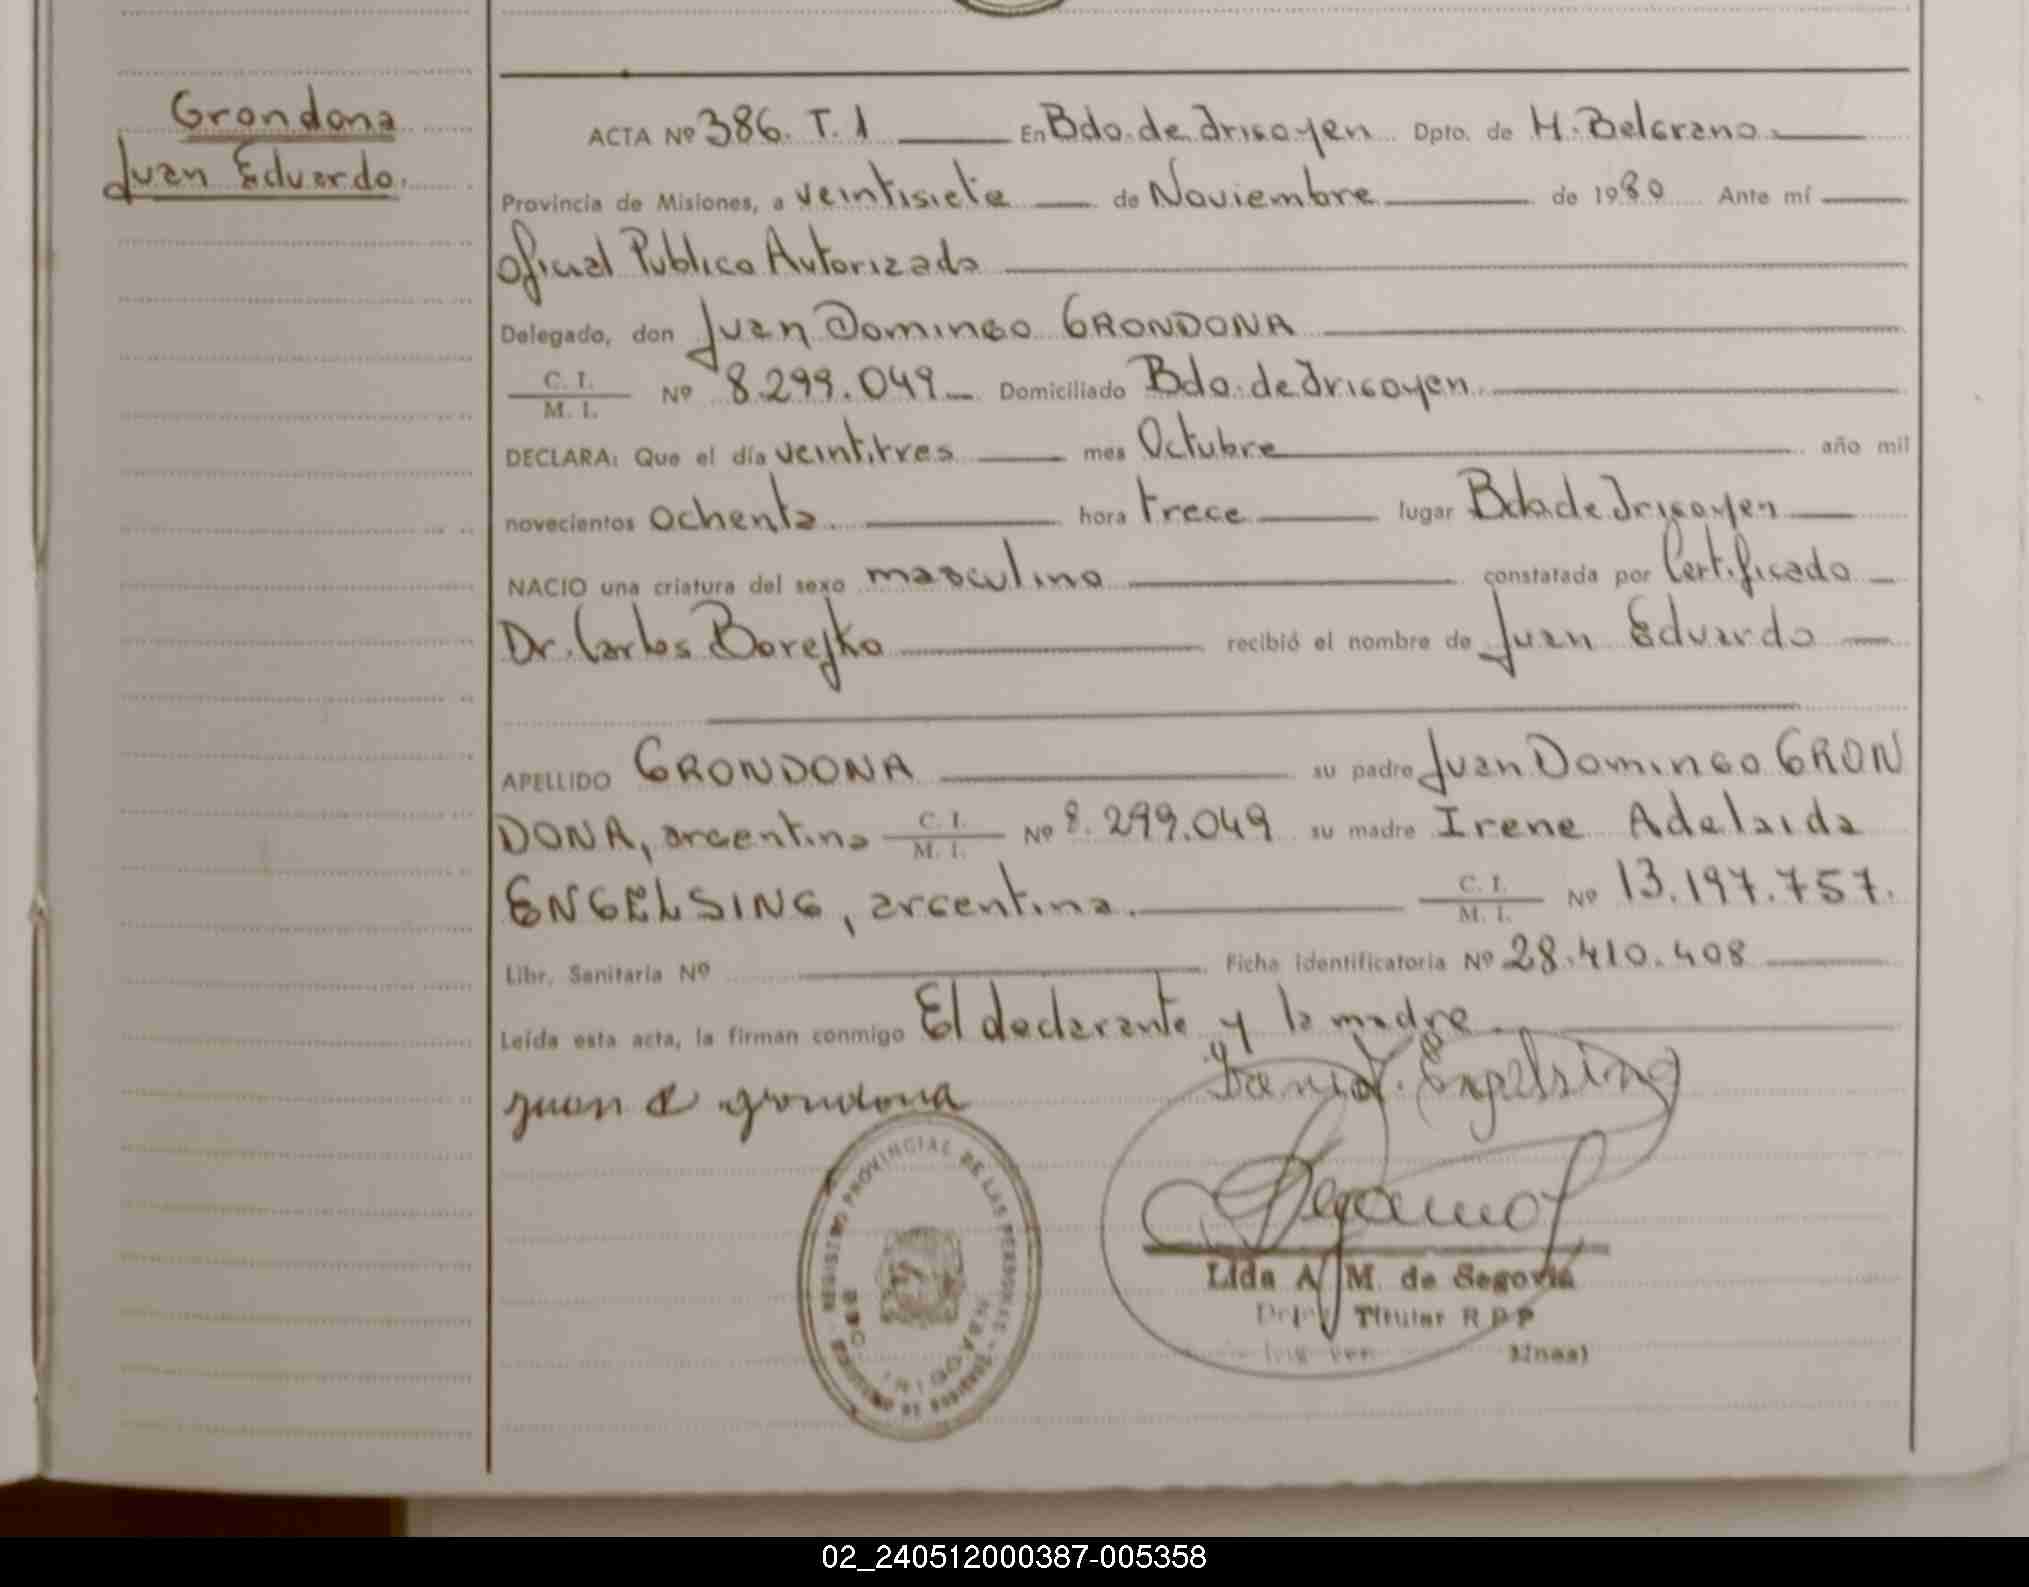 Grondona
Juan Eduardo.
ACTA Nº 386. T. 1 En Bdo. de Irigoyen Dpto. de H. Belgrano
Provincia de Misiones, a veintisiete de Noviembre de 1980 Ante mí
Oficial Publico Autorizado
Delegado, don Juan Domingo GRONDONA
C. I.
M. I. Nº 8.299.049 Domiciliado Bdo. de Irigoyen
DECLARA: Que el día veintitres mes Octubre año mil
novecientos ochenta hora trece lugar Bdo. de Irigoyen
NACIO una criatura del sexo masculino constatada por Certificado
Dr. Carlos Borejko recibió el nombre de Juan Eduardo
APELLIDO GRONDONA su padre Juan Domingo GRON
DONA, argentino C. I. M. I. Nº 8.299.049 su madre Irene Adelaida
ENGELSING, argentina. C. I. M. I. Nº 13.197.757.
Libr. Sanitaria Nº Ficha identificatoria Nº 28.410.408
Leída esta acta, la firman conmigo El declarante y la madre.
juan d grondona
Engelsing
REGISTRO PROVINCIAL DE LAS PERSONAS
Lida A. M. de Segovia
Titular R P P
02_240512000387-005358